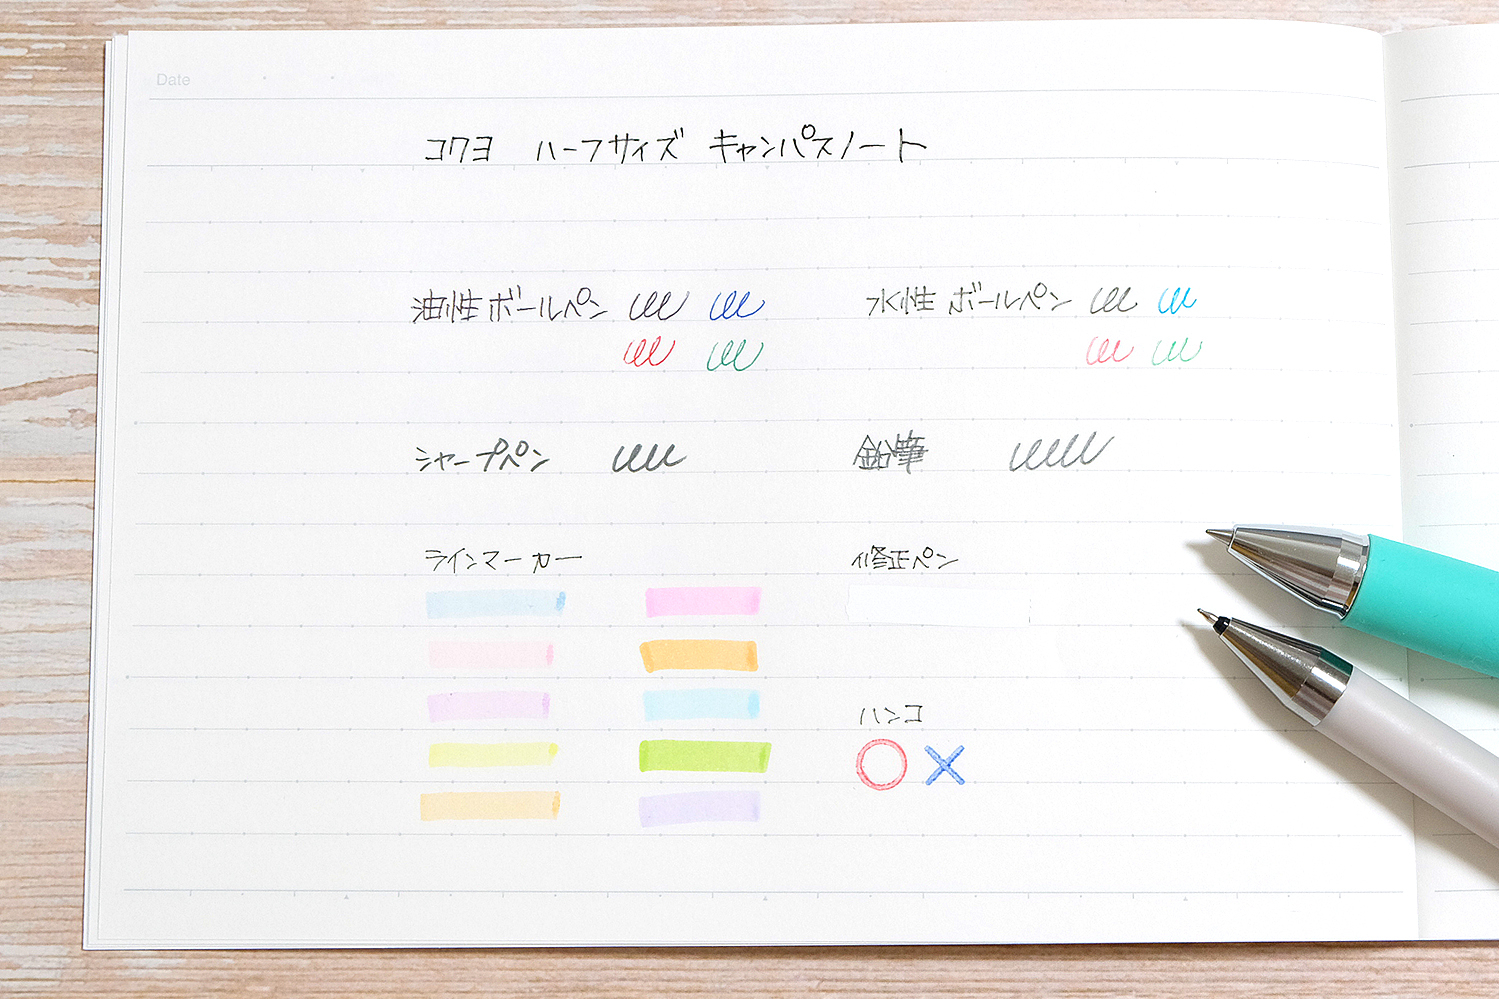 Date
コクヨ ハーフサイズ キャンパスノート
油性ボールペン 水性ボールペン
シャープペン 鉛筆
ラインマーカー 修正ペン
ハンコ